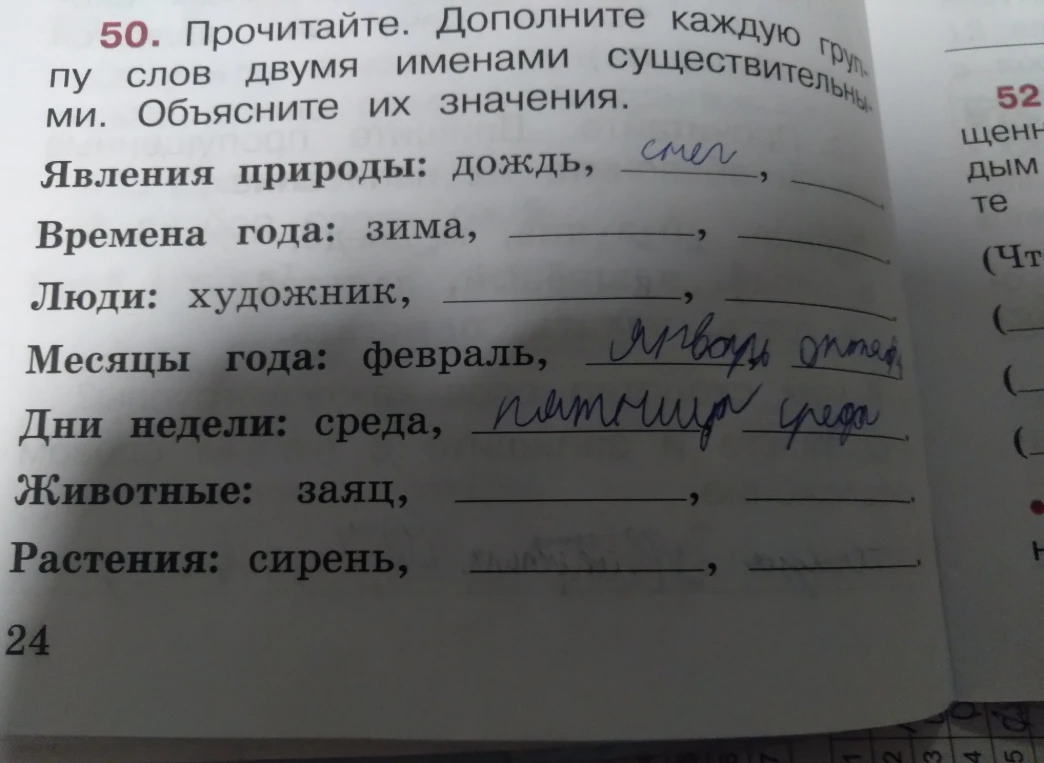 50. Прочитайте. Дополните каждую груп-
пу слов двумя именами существительны-
ми. Объясните их значения.
Явления природы: дождь, снег, ____
Времена года: зима, ____, ____
Люди: художник, ____, ____
Месяцы года: февраль, январь октябрь
Дни недели: среда, пятница среда.
Животные: заяц, ____, ____.
Растения: сирень, ____, ____.
24
52
щенн
дым
те
(Чт
(
(
(
н
1
2
3
4
5